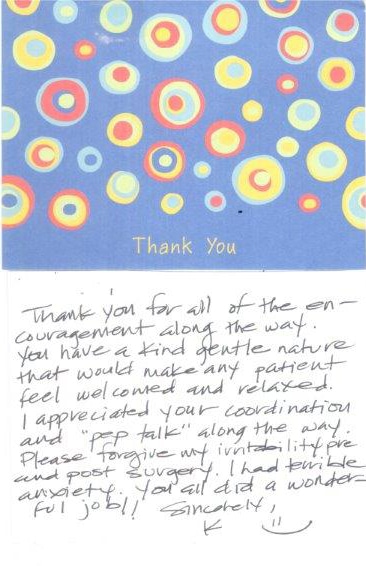 Thank You
Thank you for all of the en-
couragement along the way.
You have a kind gentle nature
that would make any patient
feel welcomed and relaxed.
I appreciated your coordination
and "pep talk" along the way.
Please forgive my irritability pre
and post surgery. I had terrible
anxiety. You all did a wonder-
ful job!! Sincerely,
K